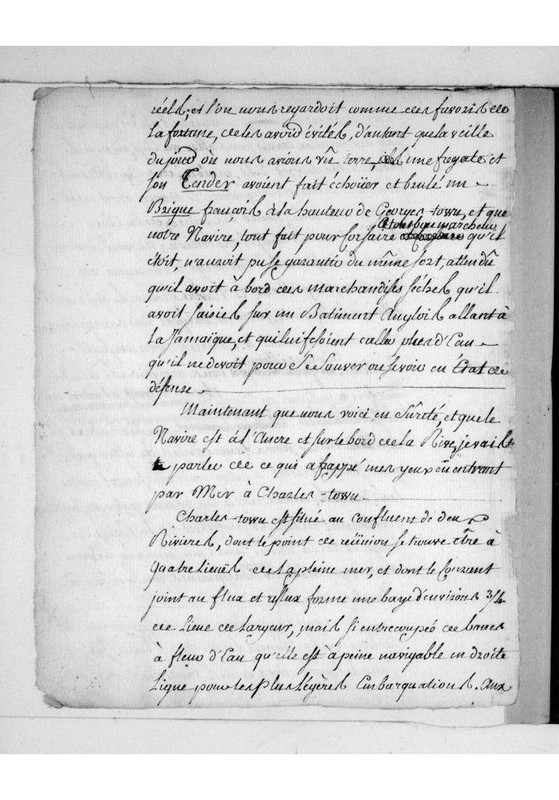 réels, et l'on nous regardoit comme des favoris de
la fortune, de les avoir évités, d'autant que la veille
du jour où nous avions vû terre, une fregate et
son Tender avoient fait échoüer et brulé un
Brique françois à la hauteur de Georges-town, et que
notre Navire, tout fait pour Corsaire et tout bon marcheur qu'il
étoit, n'auroit pu se garantir du même sort, attendu
qu'il avoit à bord des marchandises séches qu'il
avoit saisies sur un Batiment Anglois allant à
la Jamaïque, et qui lui fesoient caller plus d'Eau
qu'il ne devoit pour se Sauver ou se voir en État de
défense
Maintenant que nous voici en Sûrété, et que le
Navire est à l'Ancre et sur le bord de la Rive, je vais
parler de ce qui a frappé mes yeux en entrant
par Mer à Charles-town
Charles-town est situé au confluent de deux
Rivieres, dont le point de reünion se trouve être à
quatre lieues de la pleine mer, et dont le Courant
joint au flux et reflux forme une baye d'environ 3/4
de Lieue de Largeur, mais si entrecoupée de bancs
à fleur d'Eau qu'elle est à peine navigable en droite
Ligne pour les plus Légères Embarquations. Aux